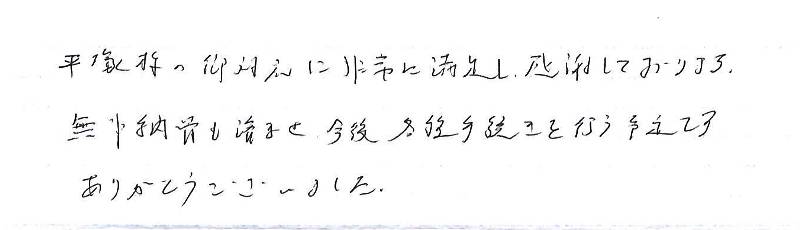 平塚様の御対応に非常に満足し、感謝しております。
無事納骨も済ませ、今後各種手続きを行う予定です
ありがとうございました。